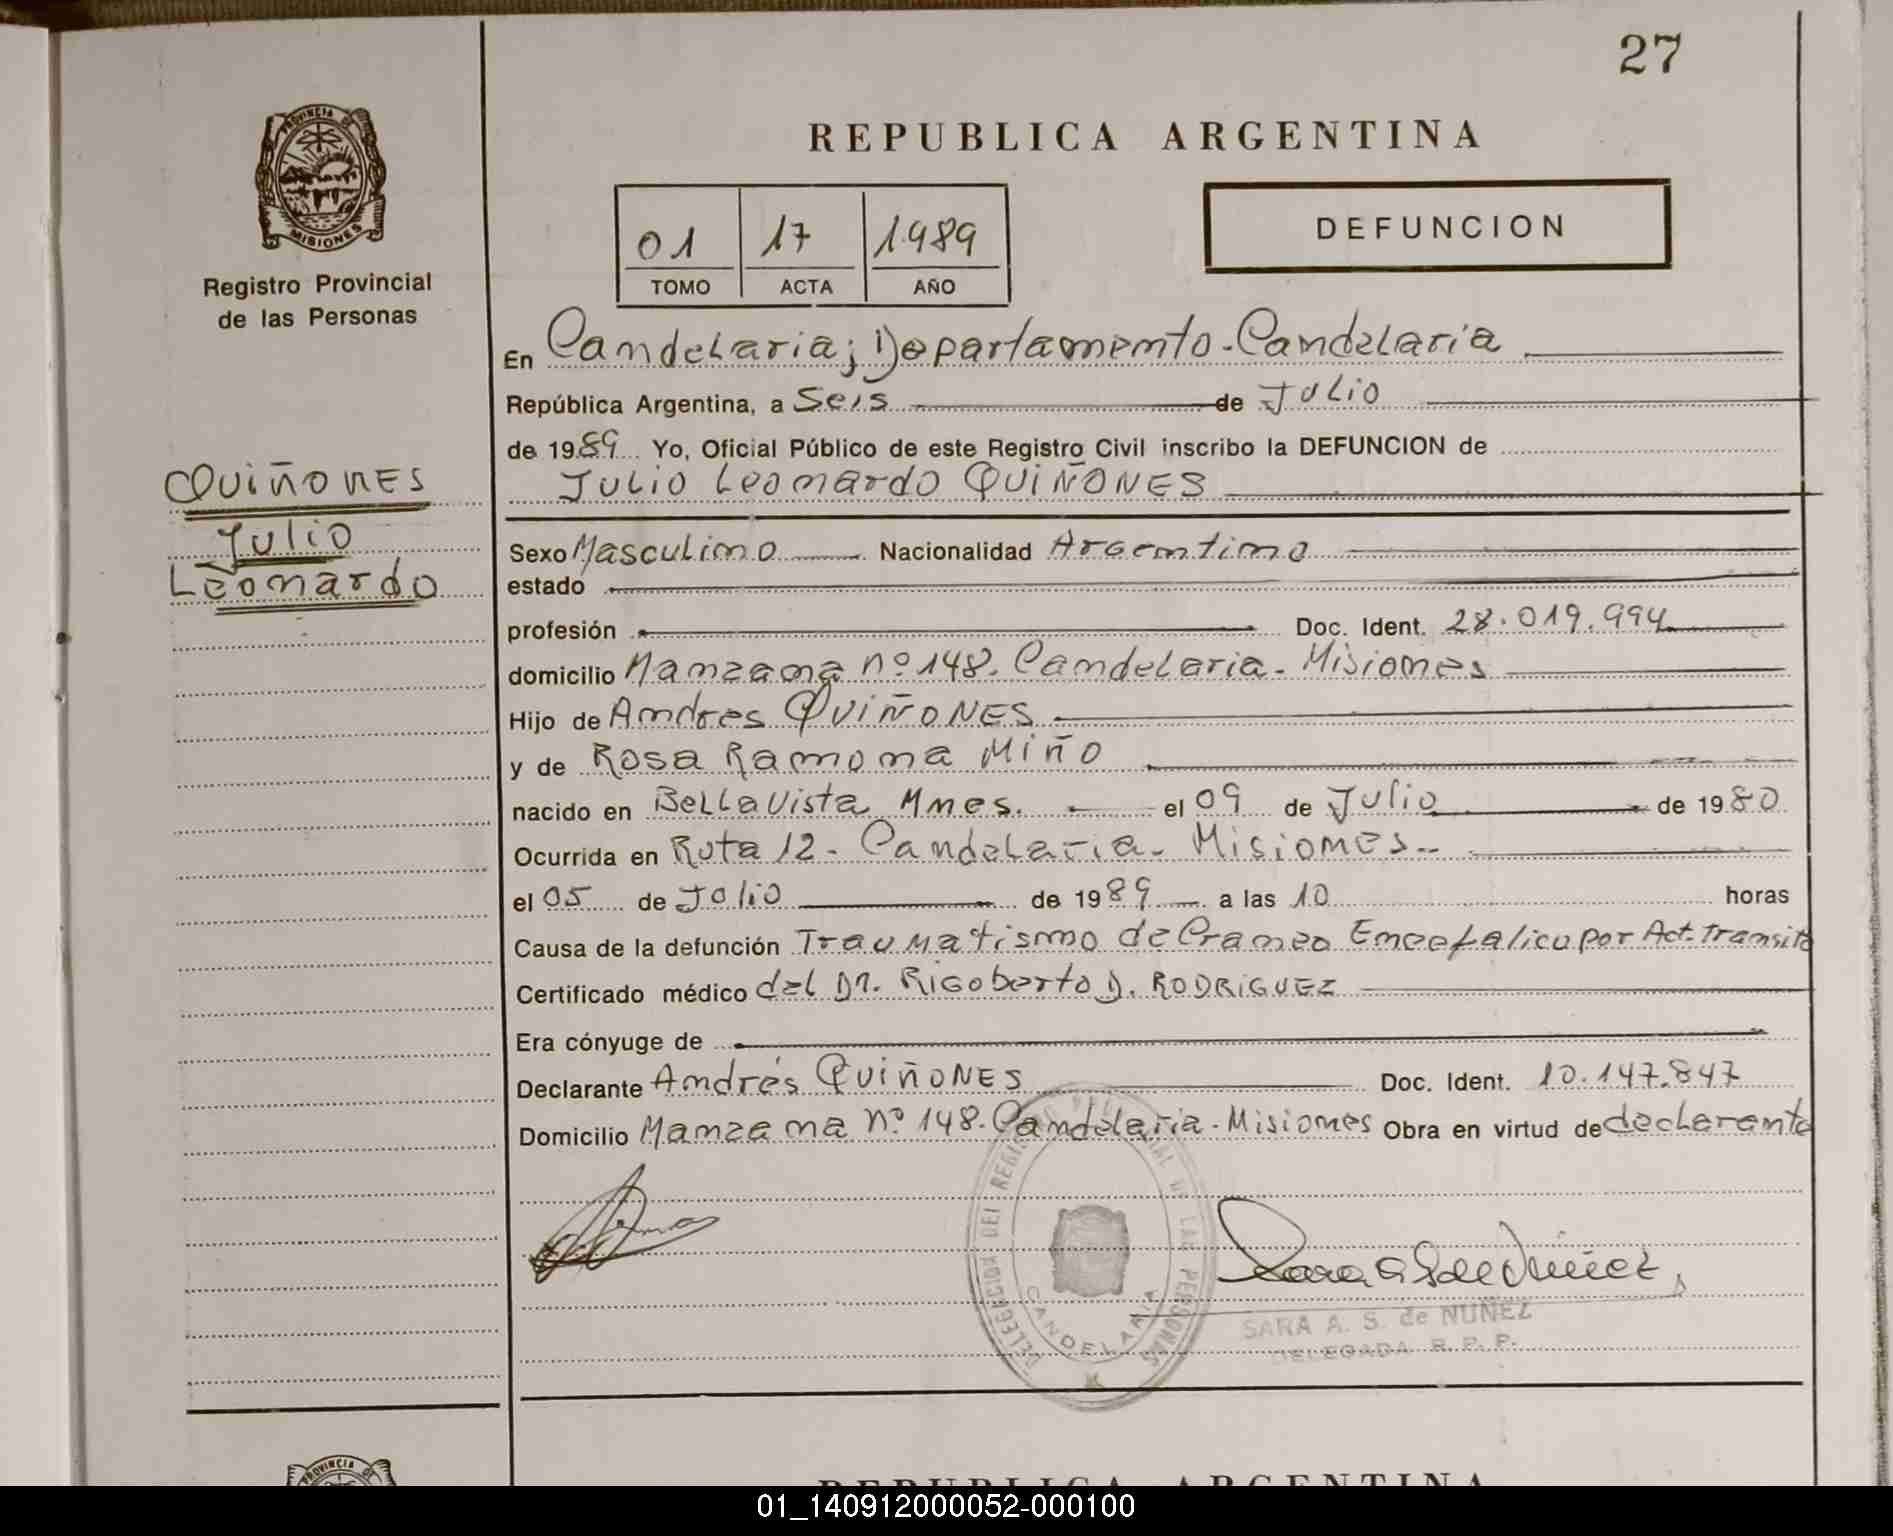 27
PROVINCIA DE
MISIONES
Registro Provincial
de las Personas
QUIÑONES
Julio
Leonardo
REPUBLICA ARGENTINA
01 17 1989
TOMO ACTA AÑO
DEFUNCION
En Candelaria; Departamento - Candelaria
República Argentina, a Seis de Julio
de 1989 Yo, Oficial Público de este Registro Civil inscribo la DEFUNCION de
Julio Leonardo QUIÑONES
Sexo Masculino Nacionalidad Argentino
estado
profesión Doc. Ident. 28.019.994
domicilio Manzana nº 148. Candelaria - Misiones
Hijo de Andres QUIÑONES
y de Rosa Ramona Miño
nacido en Bella Vista Mnes. el 09 de Julio de 1980
Ocurrida en Ruta 12 - Candelaria - Misiones
el 05 de Julio de 1989 a las 10 horas
Causa de la defunción Traumatismo de Craneo Encefalico por Act. Transito
Certificado médico del Dr. Rigoberto D. RODRIGUEZ
Era cónyuge de
Declarante Andrés QUIÑONES Doc. Ident. 10.147.847
Domicilio Manzana nº 148. Candelaria - Misiones Obra en virtud de declarante
DELEGACION DEL REGISTRO PROVINCIAL DE LAS PERSONAS
CANDELARIA
Sara A S de Nuñez
SARA A. S. de NUÑEZ
DELEGADA R. P. P.
PROVINCIA DE
REPUBLICA ARGENTINA
01_140912000052-000100